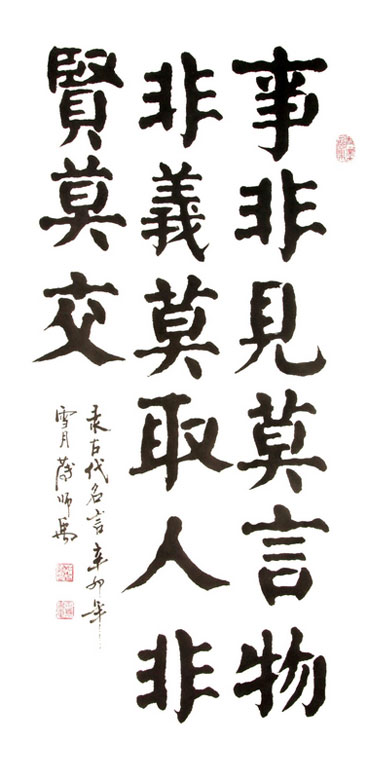 事非見莫言物
非義莫取人非
賢莫交
录古代名言辛卯年
雪月